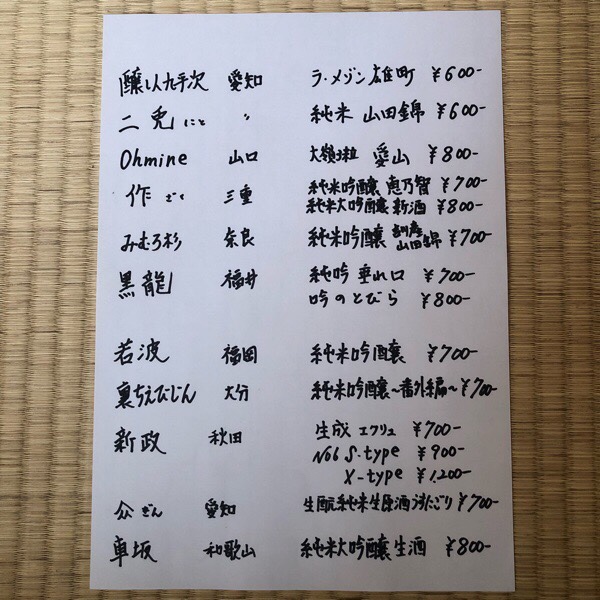 醸し人九平次 愛知 ラ・メゾン 雄町 ¥600-
二兎 にと 〃 純米 山田錦 ¥600-
Ohmine 山口 大嶺3粒 愛山 ¥800-
作 ざく 三重 純米吟醸 恵乃智 ¥700-
純米大吟醸 新酒 ¥800-
みむろ杉 奈良 純米吟醸 山田錦 ¥700-
黒龍 福井 純吟 垂れ口 ¥700-
吟のとびら ¥800-
若波 福岡 純米吟醸 ¥700-
裏ちえびじん 大分 純米吟醸 〜番外編〜 ¥700-
新政 秋田 生成 エクリュ ¥700-
No6 S-type ¥900-
X-type ¥1,200-
ぎん 愛知 生酛純米生原酒 うすにごり ¥700-
車坂 和歌山 純米大吟醸生酒 ¥800-